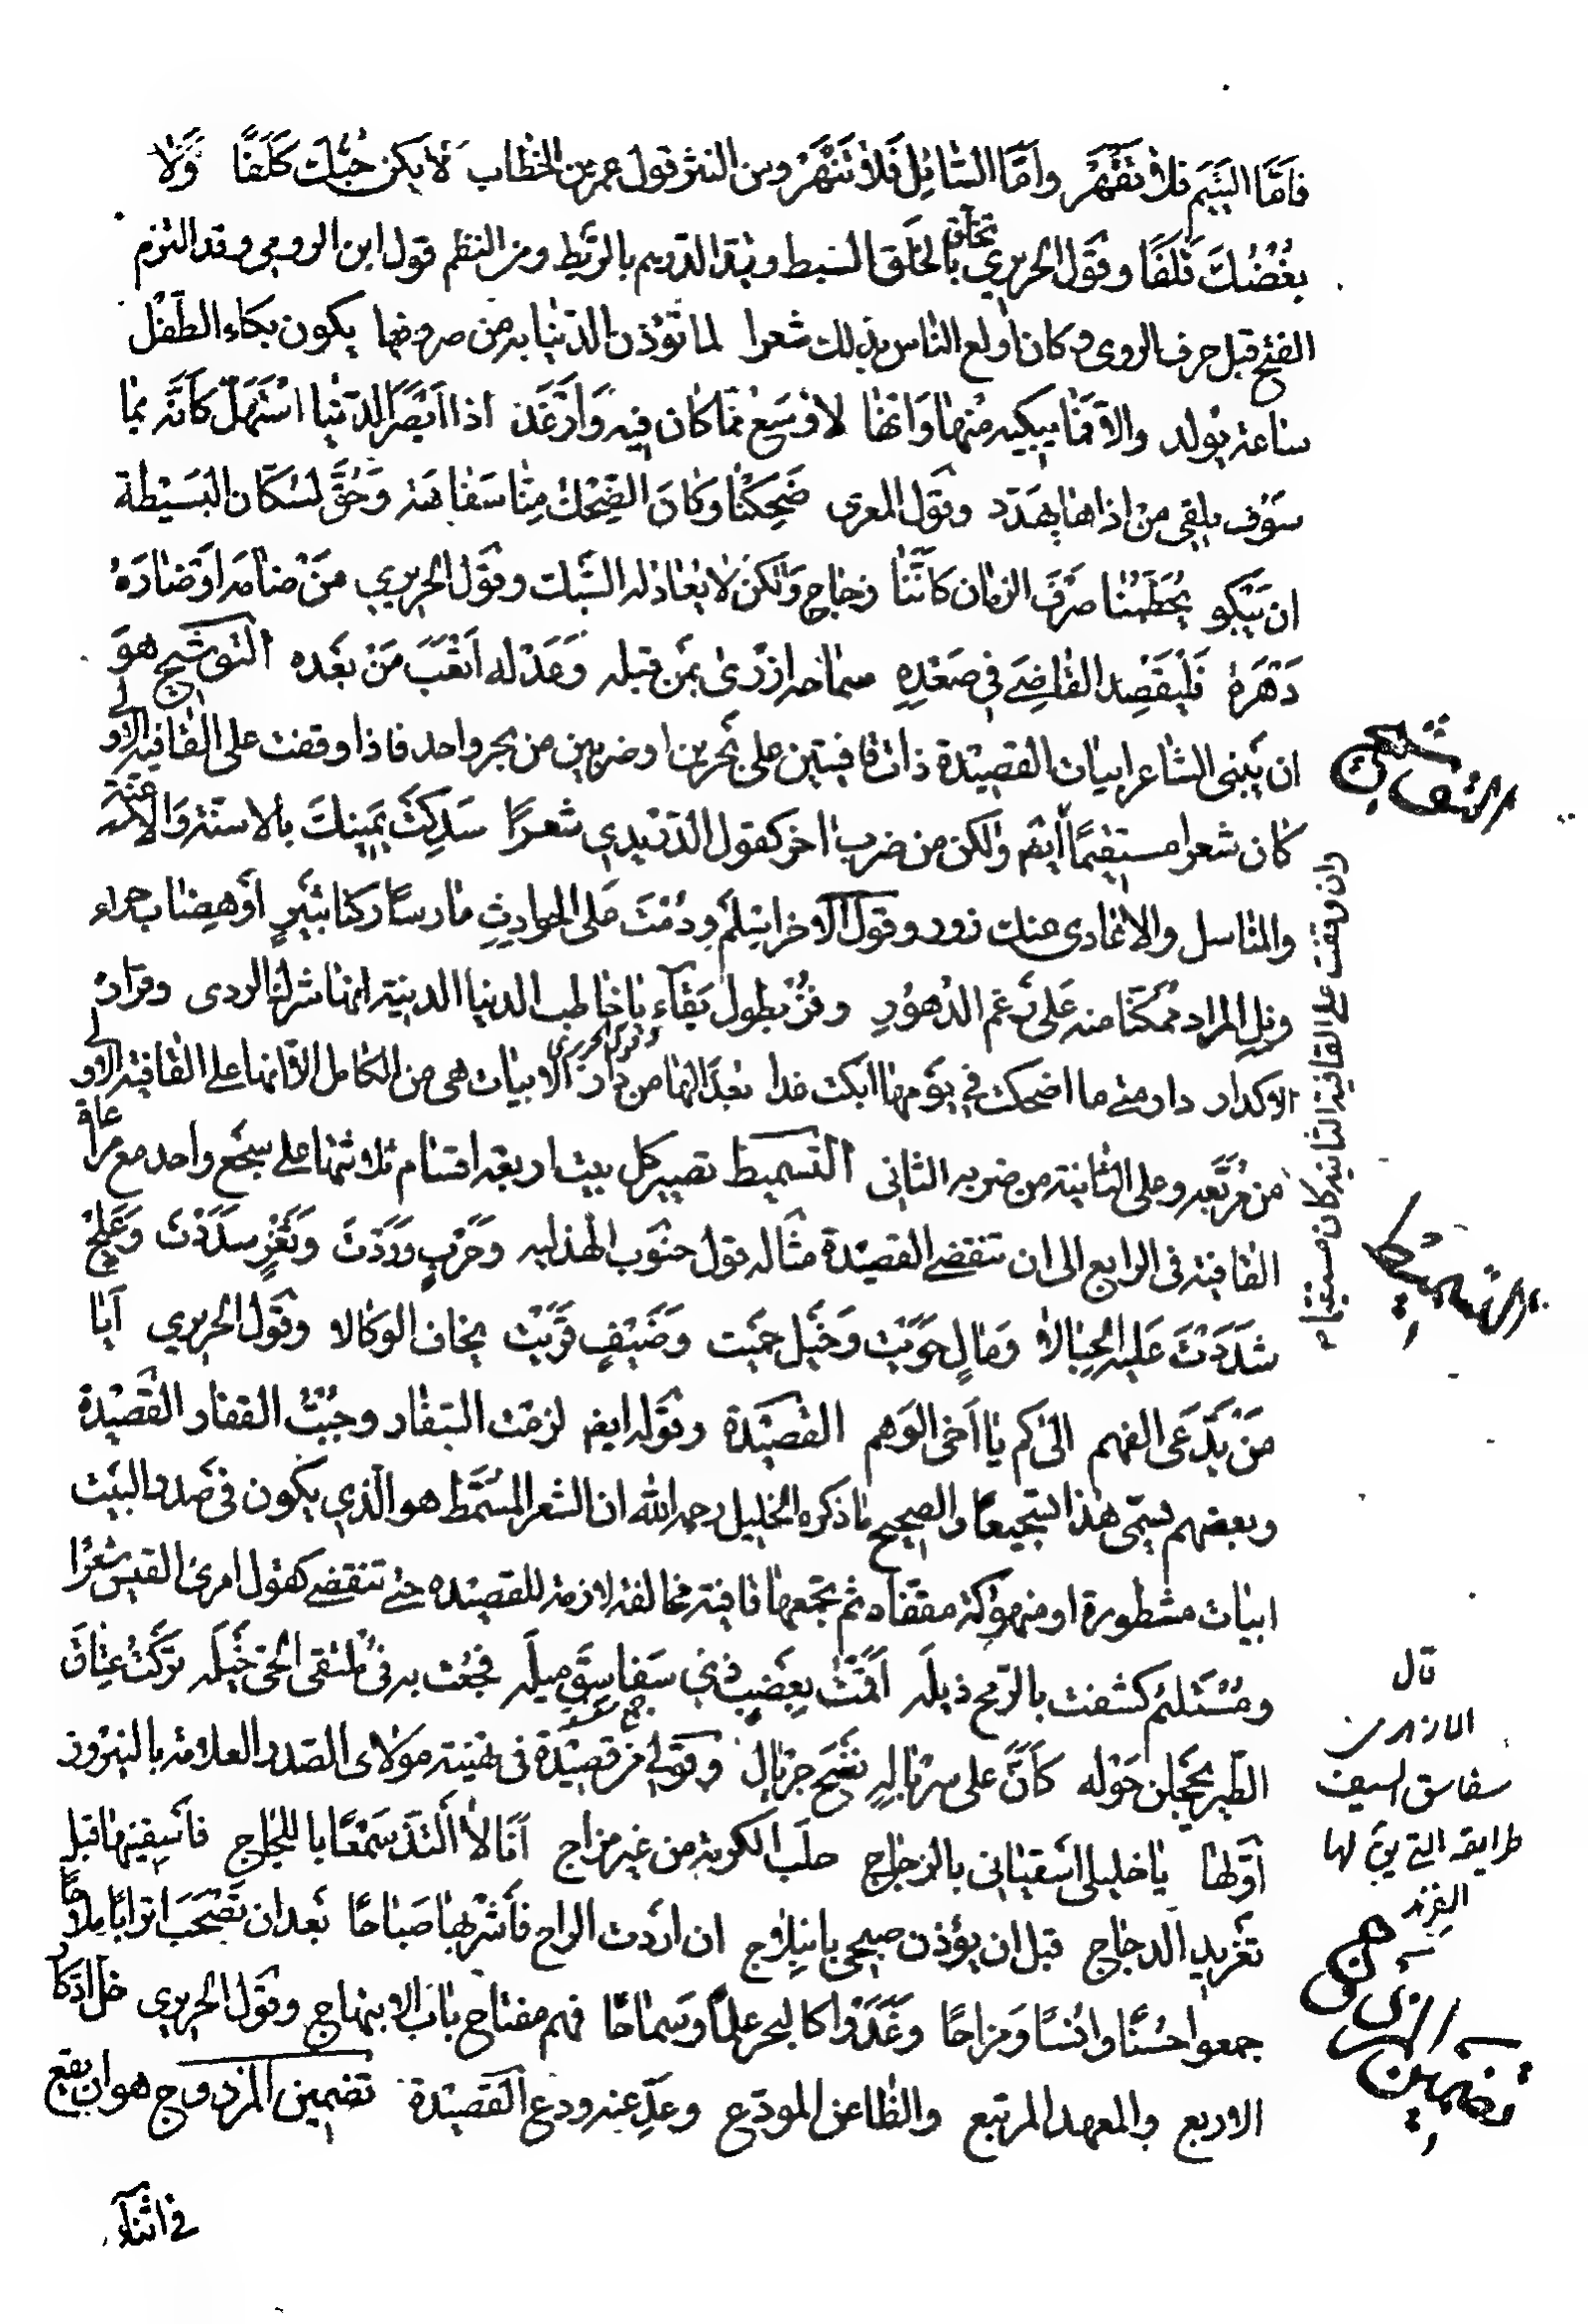 فاَمَّا اليَتيَم فلا تَقْهَرْ واَمَّا السَّائِل فَلا تَنْهَرْ ومن النثر قول عمر بن الخطاب لا يكن حُبُّكَ كَلَفًا وَلا
بغُضُكَ تَلَفًا وقَول الحريري تخلّق بالخلق السَبط وبَدّا الدرهم بالرَبط ومن النظم قول ابن الرومي وقد التزم
الفتح قبل حرف الروى وكان اولع الناس بذلك شعرا لما تؤذن الدنيا به من صروفها يكون بكاء الطفل
ساعة يولد والا فما يبكيه منها وانها لاوسع مما كان فيه وارغد اذا ابصر الدنيا استهل كانه بما
سوف يلقى من اذاها يهدد وقول المعرى ضحكنا وكان الضحك منا سفاهة وحق لسكان البسيطة
ان يبكو يحطمنا صرف الزمان كاننا زجاج ولكن لا يعاد له السبك وقول الحريري من ضامه او ضاره
دهره فليقصد القاضي في صعده سماحه ازرى بمن قبله وعدله اتعب من بعده التوشيح هو
ان يبنى الشاعر ابيات القصيدة ذات قافيتين على بحرين او ضربين من بحر واحد فاذا وقفت على القافية الاولى
كان شعرا مستقيما وان وقفت على القافية الثانية كان مستقيما
ايضم ولكن من ضرب اخر كقول شعرا بيمينك بالاسنة والاعنة
والمناسل والاعادى عنك زور وقول الاخر اسلم ودمت على الحوادث ما رسا ركنا ثبير او هضاب حراء
ونل المراد ممكنا منه على رغم الدهور وفز بطول بقاء وقول الحريري يا خاطب الدنيا الدنية انها شرك الردى وقرارة
الاكدار دار متى ما اضحكت في يومها ابكت غدا بعدا لها من دار الابيات هي من الكامل الا انها على القافية الاولى
من مربعه وعلى الثانية من ضربه الثاني التسميط تصيير كل بيت اربعة اقسام ثلاثتها على سجع واحد مع مراعاة
القافية في الرابع الى ان تنقضي القصيدة مثاله قول جنوب الهذلية وحرب وردت وثغر سددت وعلج
شددت عليه الحبالا ومال حويت وخيل حميت وضيف قريت يخاف الوكالا وقول الحريري ايا
من يدعى الفهم الى كم يا اخى الوهم القصيدة وقوله ايضم لزمت السفار وجبت القفار القصيدة
وبعضهم يسمى هذا تسجيعا والصحيح ما ذكره الخليل رحمه الله ان الشعر المسمط هو الذي يكون في صدر البيت
ابيات مشطورة او منهوكة مقفاه ثم تجمعها قافية مخالفة لازمة للقصيدة حتى تنقضي كقول امرئ القيس شعرا
ومستلئم كشفت بالرمح ذيله اقمت بعضب ذي سفاسق ميله فجعت به في ملتقى الحي خيله تركت عتاق
الطير يحجلن حوله كان على سرباله نضح جريال وقولي من قصيدة في تهنية مولاى الصدر العلامة بالنيروز
اولها يا خليلى اسقيانى بالزجاج حلب الكرمة من غير مزاج انا لا التذ سمعا باللجاج فاسقنيها قبل
تغريد الدجاج قبل ان يؤذن صبحى بانبلاج ان اردت الراح فاشربها صباحا بعد ان تصحب اترابا ملاحا
جمعوا حسنا وانسا ومزاحا وغدوا كالبحر علما وسماحا فهم مفتاح باب الابتهاج وقول الحريرى خل ادكار
الاربع والمعهد المرتبع والظاعن المودع وعد عنه ودع القصيدة تضمين المزدوج هو ان يقع
في اثناء
التسميط
قال
الازهري
سفاسق السيف
طرايقه التي يق لها
الفرند
تضمين المزدوج